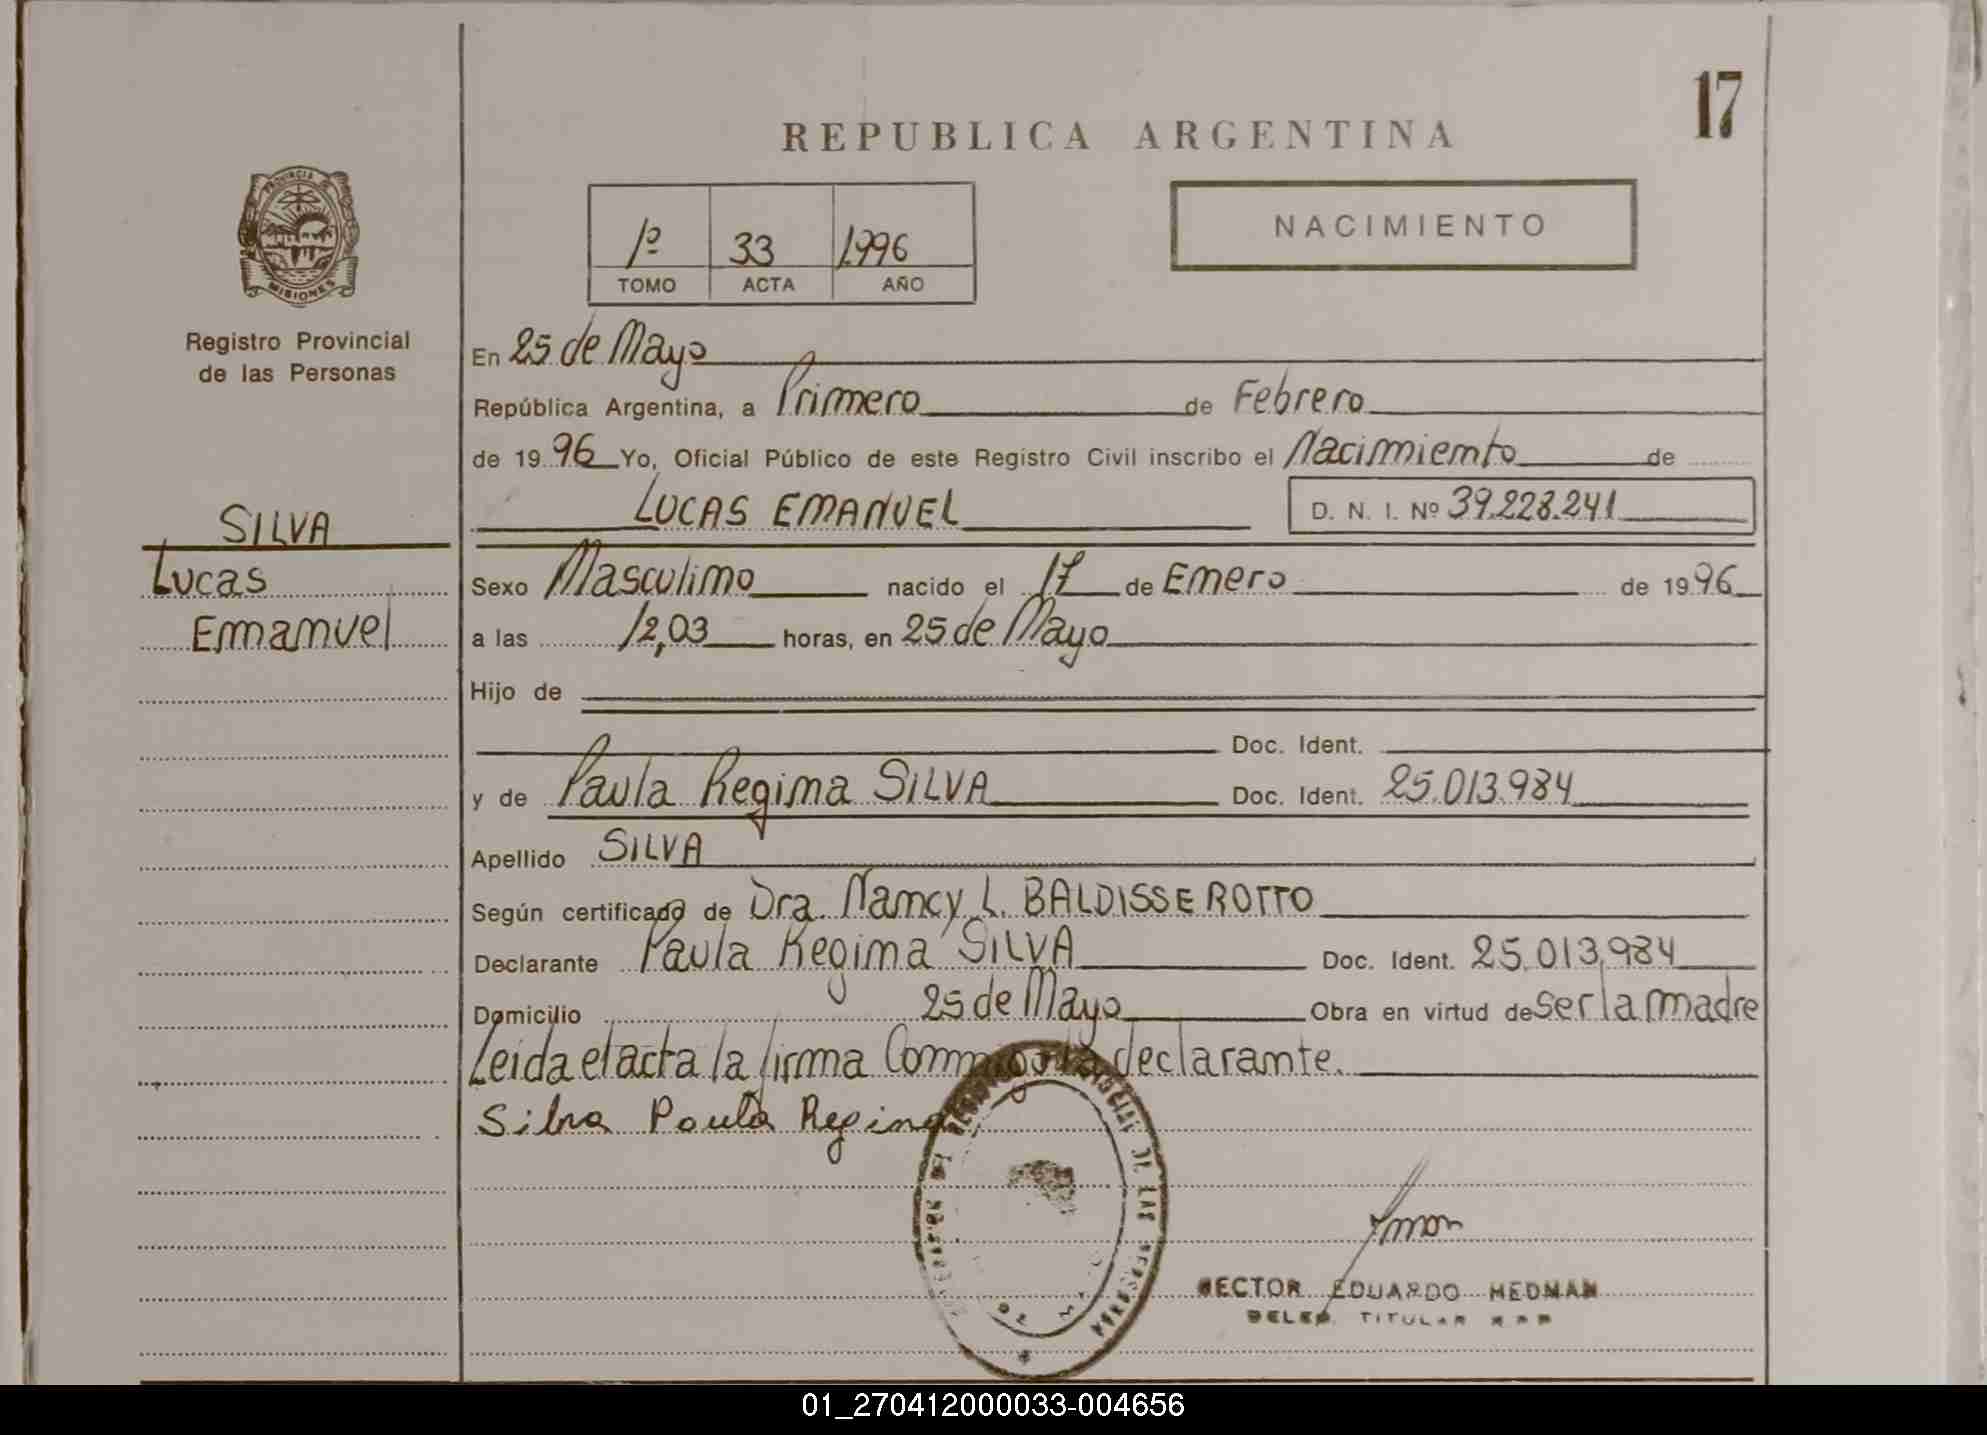 17
REPUBLICA ARGENTINA
PROVINCIA DE
MISIONES
1º 33 1996
TOMO ACTA AÑO
NACIMIENTO
Registro Provincial
de las Personas
SILVA
Lucas
Emanuel
En 25 de Mayo
República Argentina, a Primero de Febrero
de 19 96 Yo, Oficial Público de este Registro Civil inscribo el Nacimiento de
LUCAS EMANUEL D. N. I. Nº 39.228.241
Sexo Masculino nacido el 17 de Enero de 19 96
a las 12,03 horas, en 25 de Mayo
Hijo de
Doc. Ident.
y de Paula Regina SILVA Doc. Ident. 25.013.984
Apellido SILVA
Según certificado de Dra. Nancy L. BALDISSEROTTO
Declarante Paula Regina SILVA Doc. Ident. 25.013.984
Domicilio 25 de Mayo Obra en virtud de ser la madre
Leida el acta la firma Conmigo la declarante.
Silva Paula Regina
DE LAS PERSONAS
HECTOR EDUARDO HEDMAN
DELEG. TITULAR
01_270412000033-004656